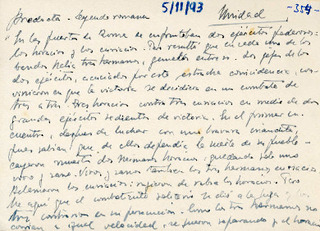 Anécdota - Leyenda romana 5/11/93 Unidad -359-
"En las puertas de Roma se enfrentaban dos ejércitos poderosos:
los horacios y los curiacios. Pero resulta que en cada uno de los
bandos había tres hermanos, gemelos entre sí. Los jefes de los
dos ejércitos, acuciados por esta extraña coincidencia, con-
vinieron en que la victoria se decidiera en un combate de
tres a tres: tres horacios contra tres curiacios en medio de dos
grandes ejércitos sedientos de victoria. En el primer en-
cuentro, después de luchar con una bravura inaudita,
pues sabían que de ellos dependía la suerte de su pueblo -
cayeron muertos dos hermanos horacios, quedando sólo uno
vivo y sano. Vivos y sanos también los tres hermanos curiacios.
Deliraron los curiacios; rugieron de rabia los horacios. Pero
he aquí que el combatiente solitario se dio a la fuga y los
tres corrieron en su persecución. Como los tres hermanos no
corrían a igual velocidad, se fueron separando y el horacio